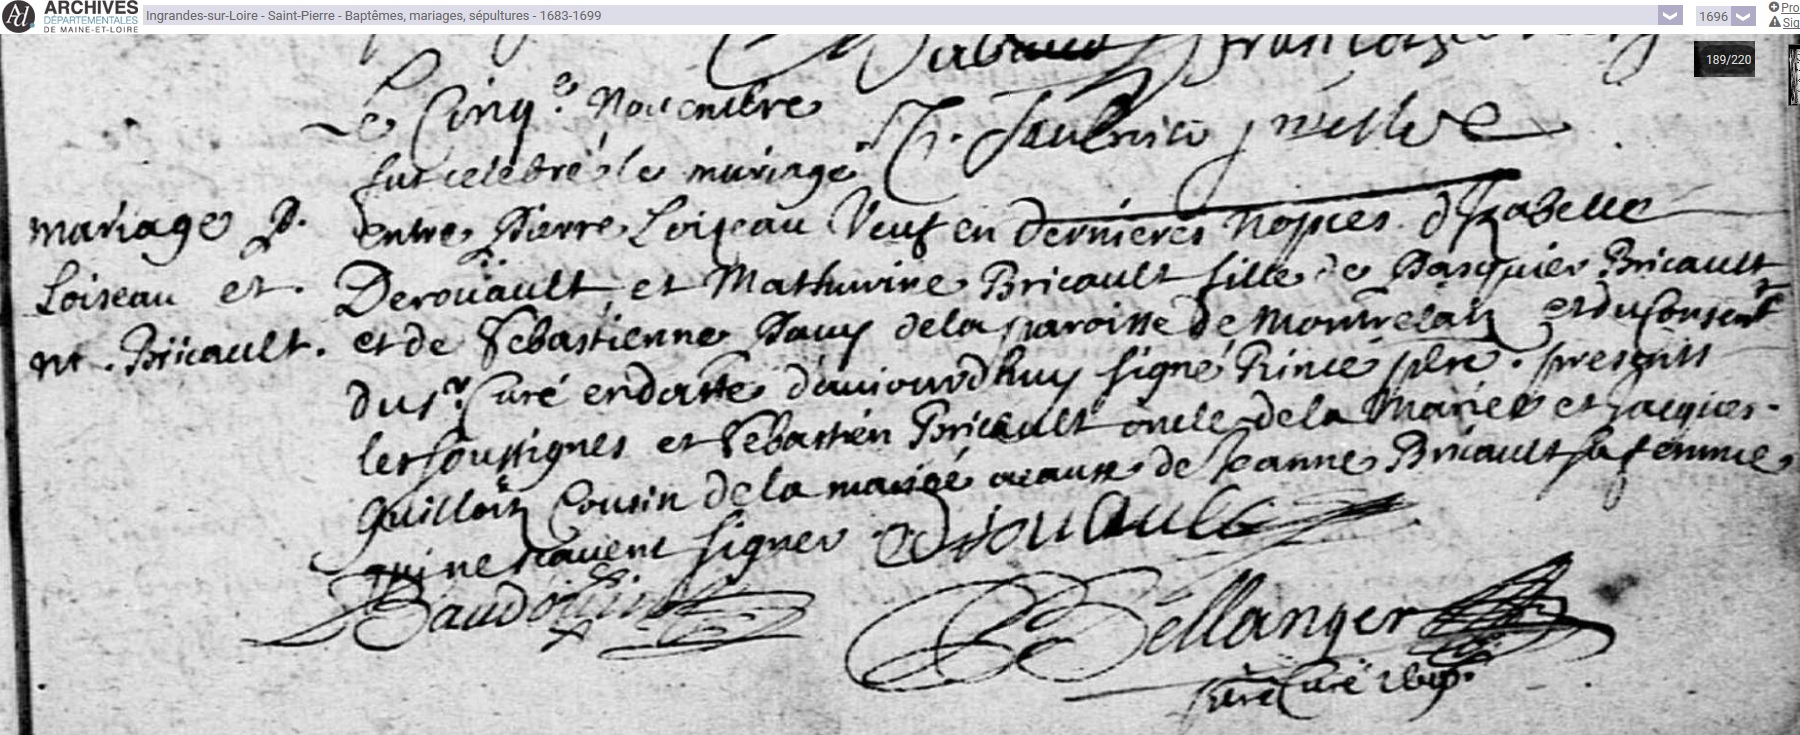 ARCHIVES
DÉPARTEMENTALES
DE MAINE-ET-LOIRE
Ingrandes-sur-Loire - Saint-Pierre - Baptêmes, mariages, sépultures - 1683-1699
1696
Pro
Sig
189/220
Le Cinq.e Novembre
fut celebré le mariage
mariage P.
Loiseau et.
M. Bricault.
entre Pierre Loiseau Veuf en dernieres nopces d'Izabelle
Deroüault et Mathurine Bricault fille de Pasquier Bricault
et de Sebastienne Dauy dela paroisse de Montrelaiz et du Consent
du sr. Curé en datte d'auiourdhuy signé Prince pbre. presents
les soussignes et Sebastien Bricault oncle dela Mariée et Jacques
Guilloiz Cousin dela mariée acause de Jeanne Bricault sa femme
qui ne scauent signer
Baudouin
Bellanger
Curé